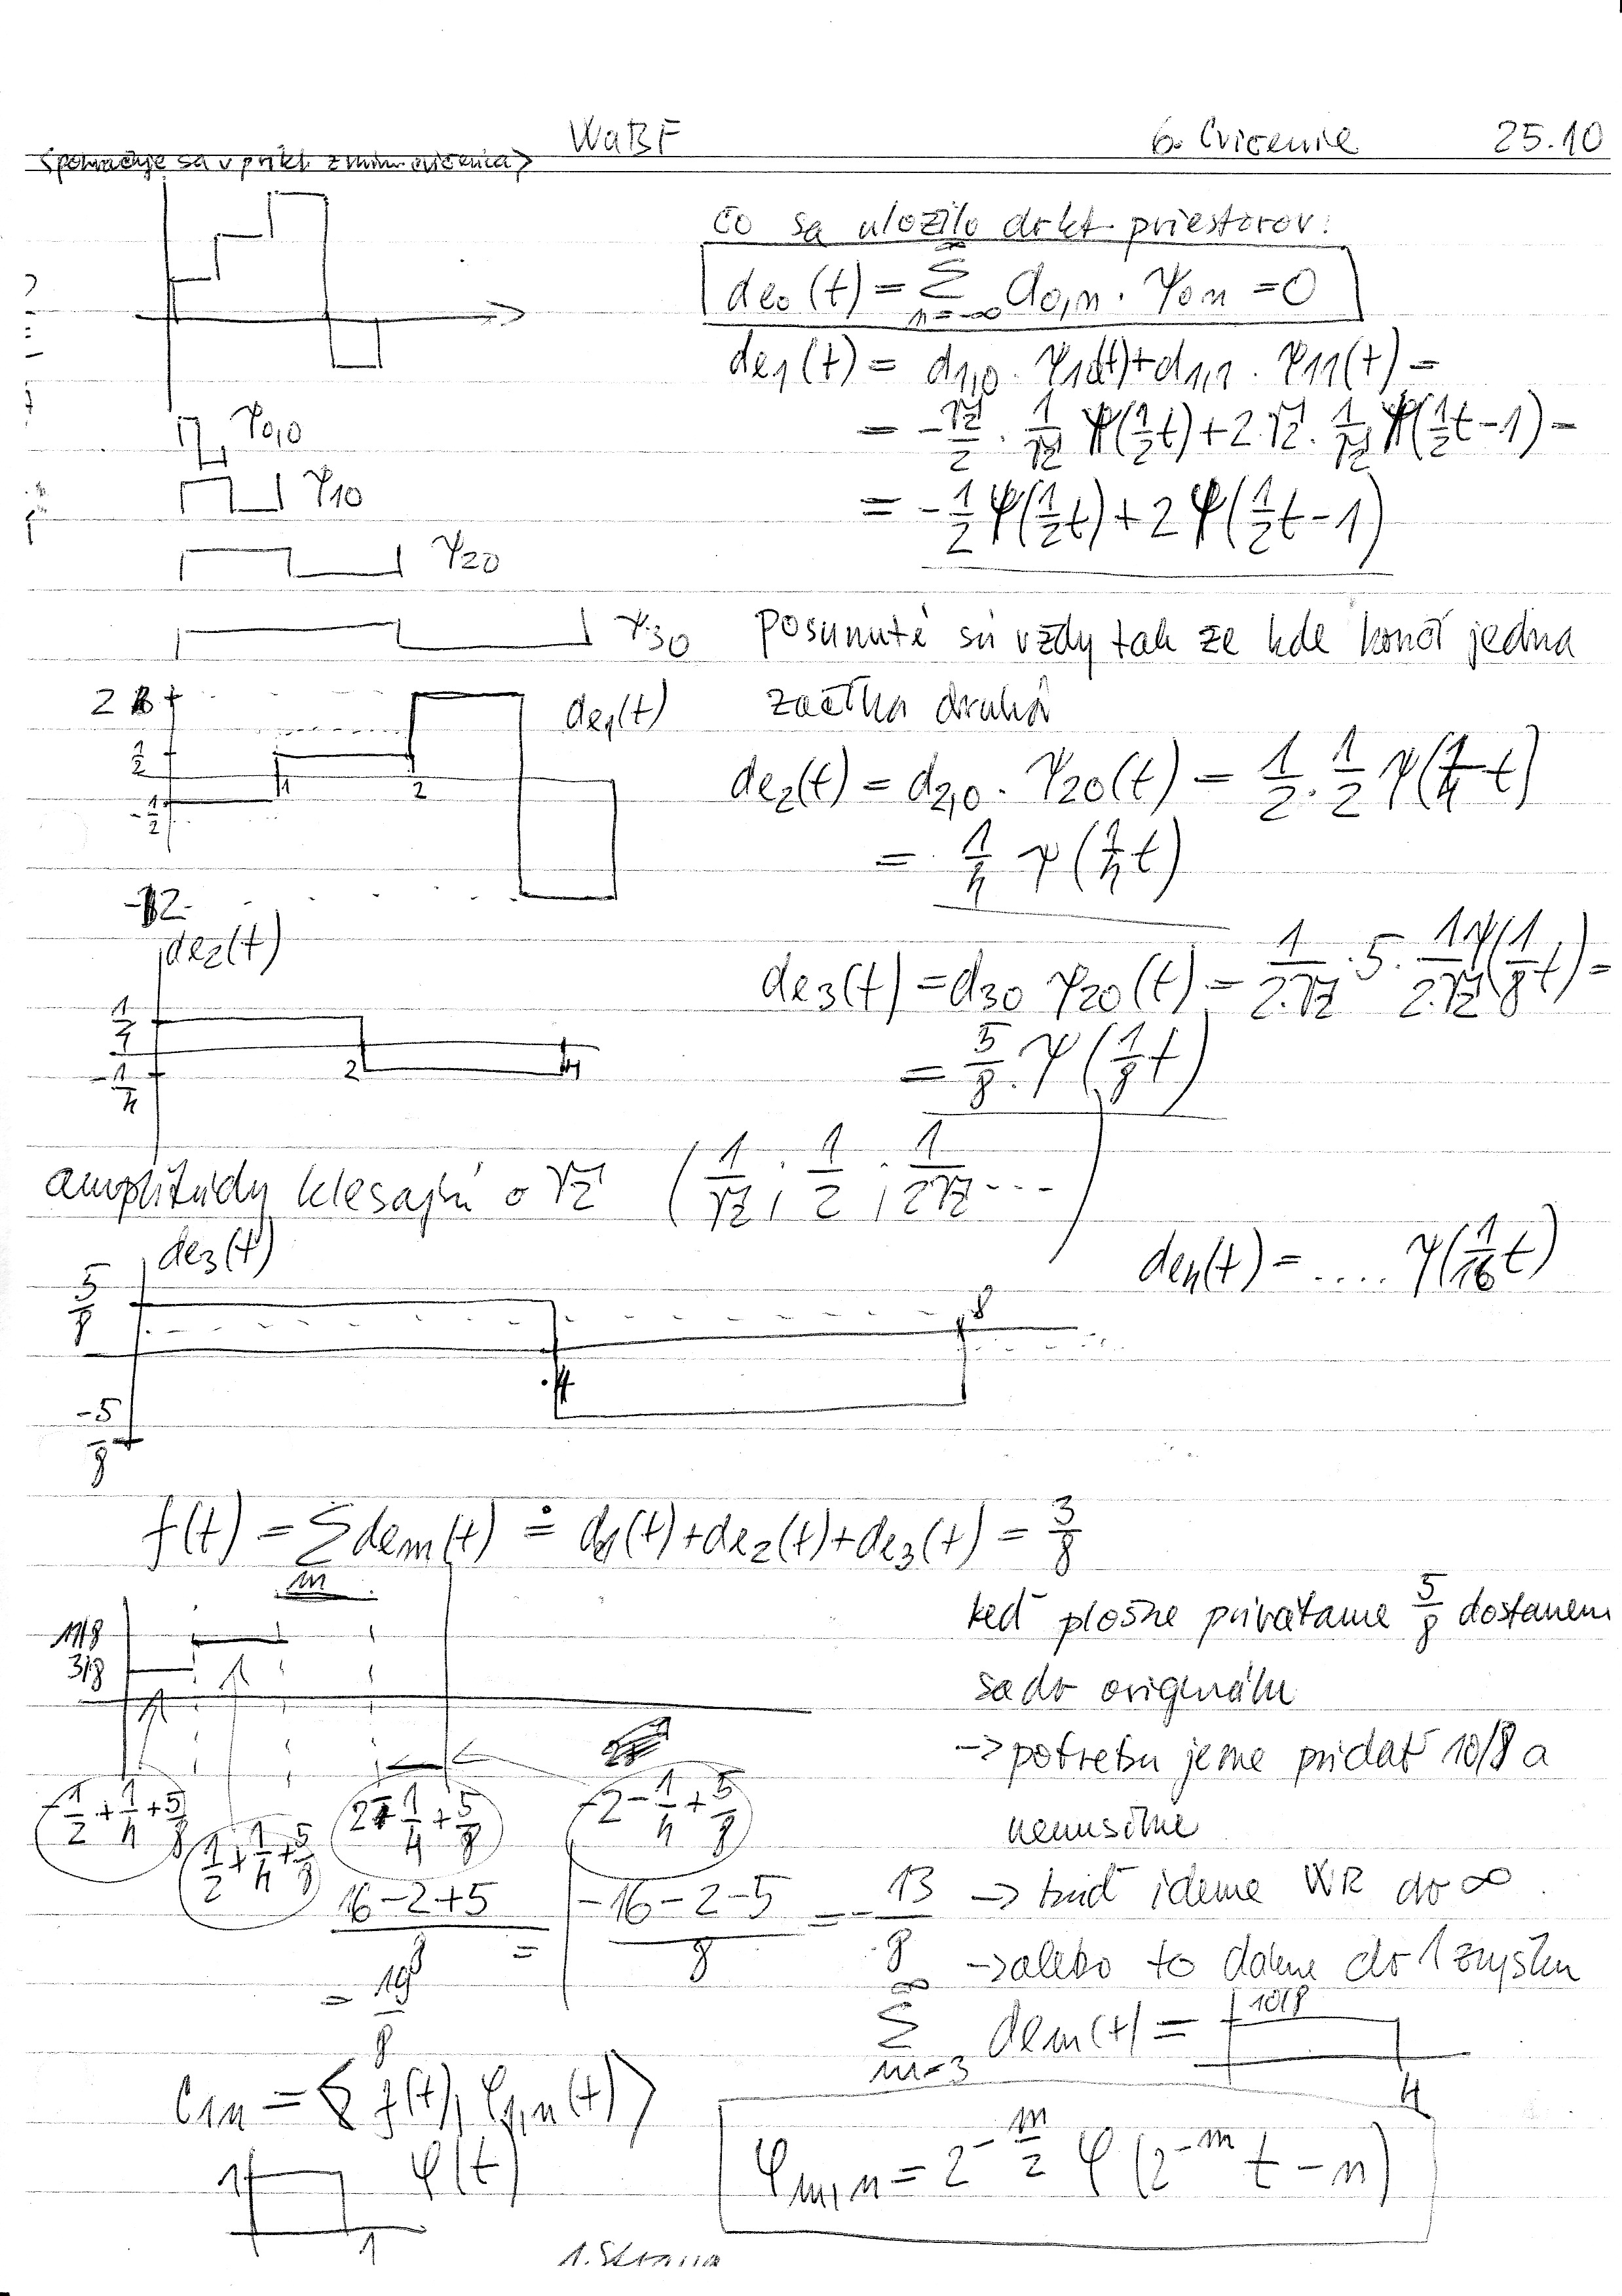 WaBF 6. Cvičenie 25.10
<pokračuje sa v príkl. z min. cvičenia>
čo sa uložilo do kt. priestorov:
de₀(t) = ∑_{n=-∞}^{∞} d₀,n · ψ₀n = 0
de₁(t) = d₁,₀ · ψ₁₀(t) + d₁,₁ · ψ₁₁(t) =
ψ₀,₀
= -√2/2 · 1/√2 ψ(1/2 t) + 2·√2 · 1/√2 ψ(1/2 t - 1) =
ψ₁₀
= -1/2 ψ(1/2 t) + 2 ψ(1/2 t - 1)
ψ₂₀
ψ₃₀
posunuté sú vždy tak že kde končí jedna
začína druhá
2
de₁(t)
1/2
-1/2
1 2
-2
de₂(t) = d₂,₀ · ψ₂₀(t) = 1/2 · 1/2 ψ(1/4 t)
= 1/4 ψ(1/4 t)
de₂(t)
1/4
-1/4
2 4
de₃(t) = d₃₀ ψ₂₀(t) = 1/(2·√2) · 5 · 1/(2·√2) ψ(1/8 t) =
= 5/8 · ψ(1/8 t)
amplitúdy klesajú o √2 (1/√2 ; 1/2 ; 1/(2√2) ...)
de₃(t)
de₄(t) = .... ψ(1/16 t)
5/8
8
4
-5/8
f(t) = ∑_m de_m(t) ≐ d₁(t) + de₂(t) + de₃(t) = 3/8
11/8
3/8
keď plošne prirátame 5/8 dostanem
sa do originálu
-> potrebujeme pridať 10/8 a
nemusíme
-> buď ideme WR do ∞
-> alebo to dáme do 1 zvyšku
-1/2 + 1/4 + 5/8
1/2 + 1/4 + 5/8
2 - 1/4 + 5/8
-2 - 1/4 + 5/8
(16 - 2 + 5)/8 =
= 19/8
(-16 - 2 - 5)/8 = -13/8
∑_{m=3}^{∞} de_m(t) =
10/8
4
c₁n = < f(t), φ₁,n(t) >
φ(t)
1
1
φm,n = 2^{-m/2} φ(2^{-m} t - n)
1. Strana